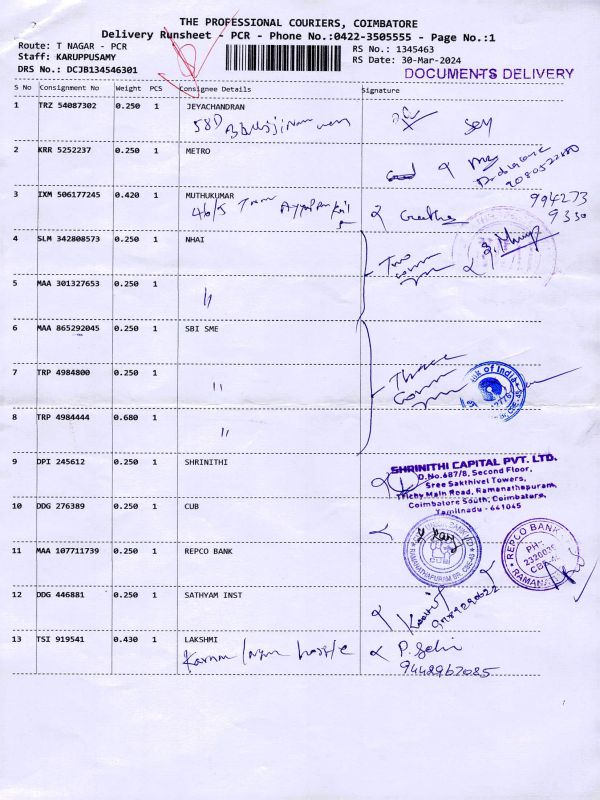 THE PROFESSIONAL COURIERS, COIMBATORE
Delivery Runsheet - PCR - Phone No.:0422-3505555 - Page No.:1
Route: T NAGAR - PCR
RS No.: 1345463
Staff: KARUPPUSAMY
RS Date: 30-Mar-2024
DRS No.: DCJB134546301
DOCUMENTS DELIVERY
S No Consignment No Weight PCS Consignee Details Signature
1 TRZ 54087302 0.250 1 JEYACHANDRAN
58D
2 KRR 5252237 0.250 1 METRO
3 IXM 506177245 0.420 1 MUTHUKUMAR
46/5
Geetha
994273
9330
4 SLM 342808573 0.250 1 NHAI
Two
5 MAA 301327653 0.250 1
"
6 MAA 865292045 0.250 1 SBI SME
Three
7 TRP 4984800 0.250 1
"
8 TRP 4984444 0.680 1
"
9 DPI 245612 0.250 1 SHRINITHI
SHRINITHI CAPITAL PVT. LTD.
D.No.687/8, Second Floor,
Sree Sakthivel Towers,
Trichy Main Road, Ramanathapuram,
Coimbatore South, Coimbatore,
Tamilnadu - 641045
10 DDG 276389 0.250 1 CUB
11 MAA 107711739 0.250 1 REPCO BANK
REPCO BANK
12 DDG 446881 0.250 1 SATHYAM INST
13 TSI 919541 0.430 1 LAKSHMI
P. Selvi
9442967085